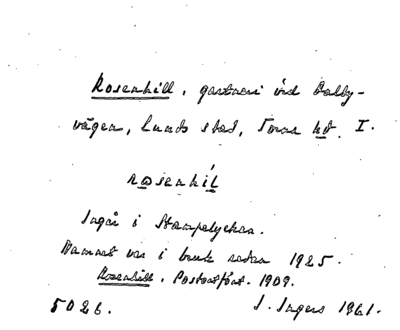 Rosenhill, gartneri vid Dalby-
vägen, Lunds stad, Torna hd. I.
rosenhil
Ingår i Stampelyckan.
Namnet var i bruk redan 1925.
Rosenhill. 1909.
5026. I. Ingers 1961.